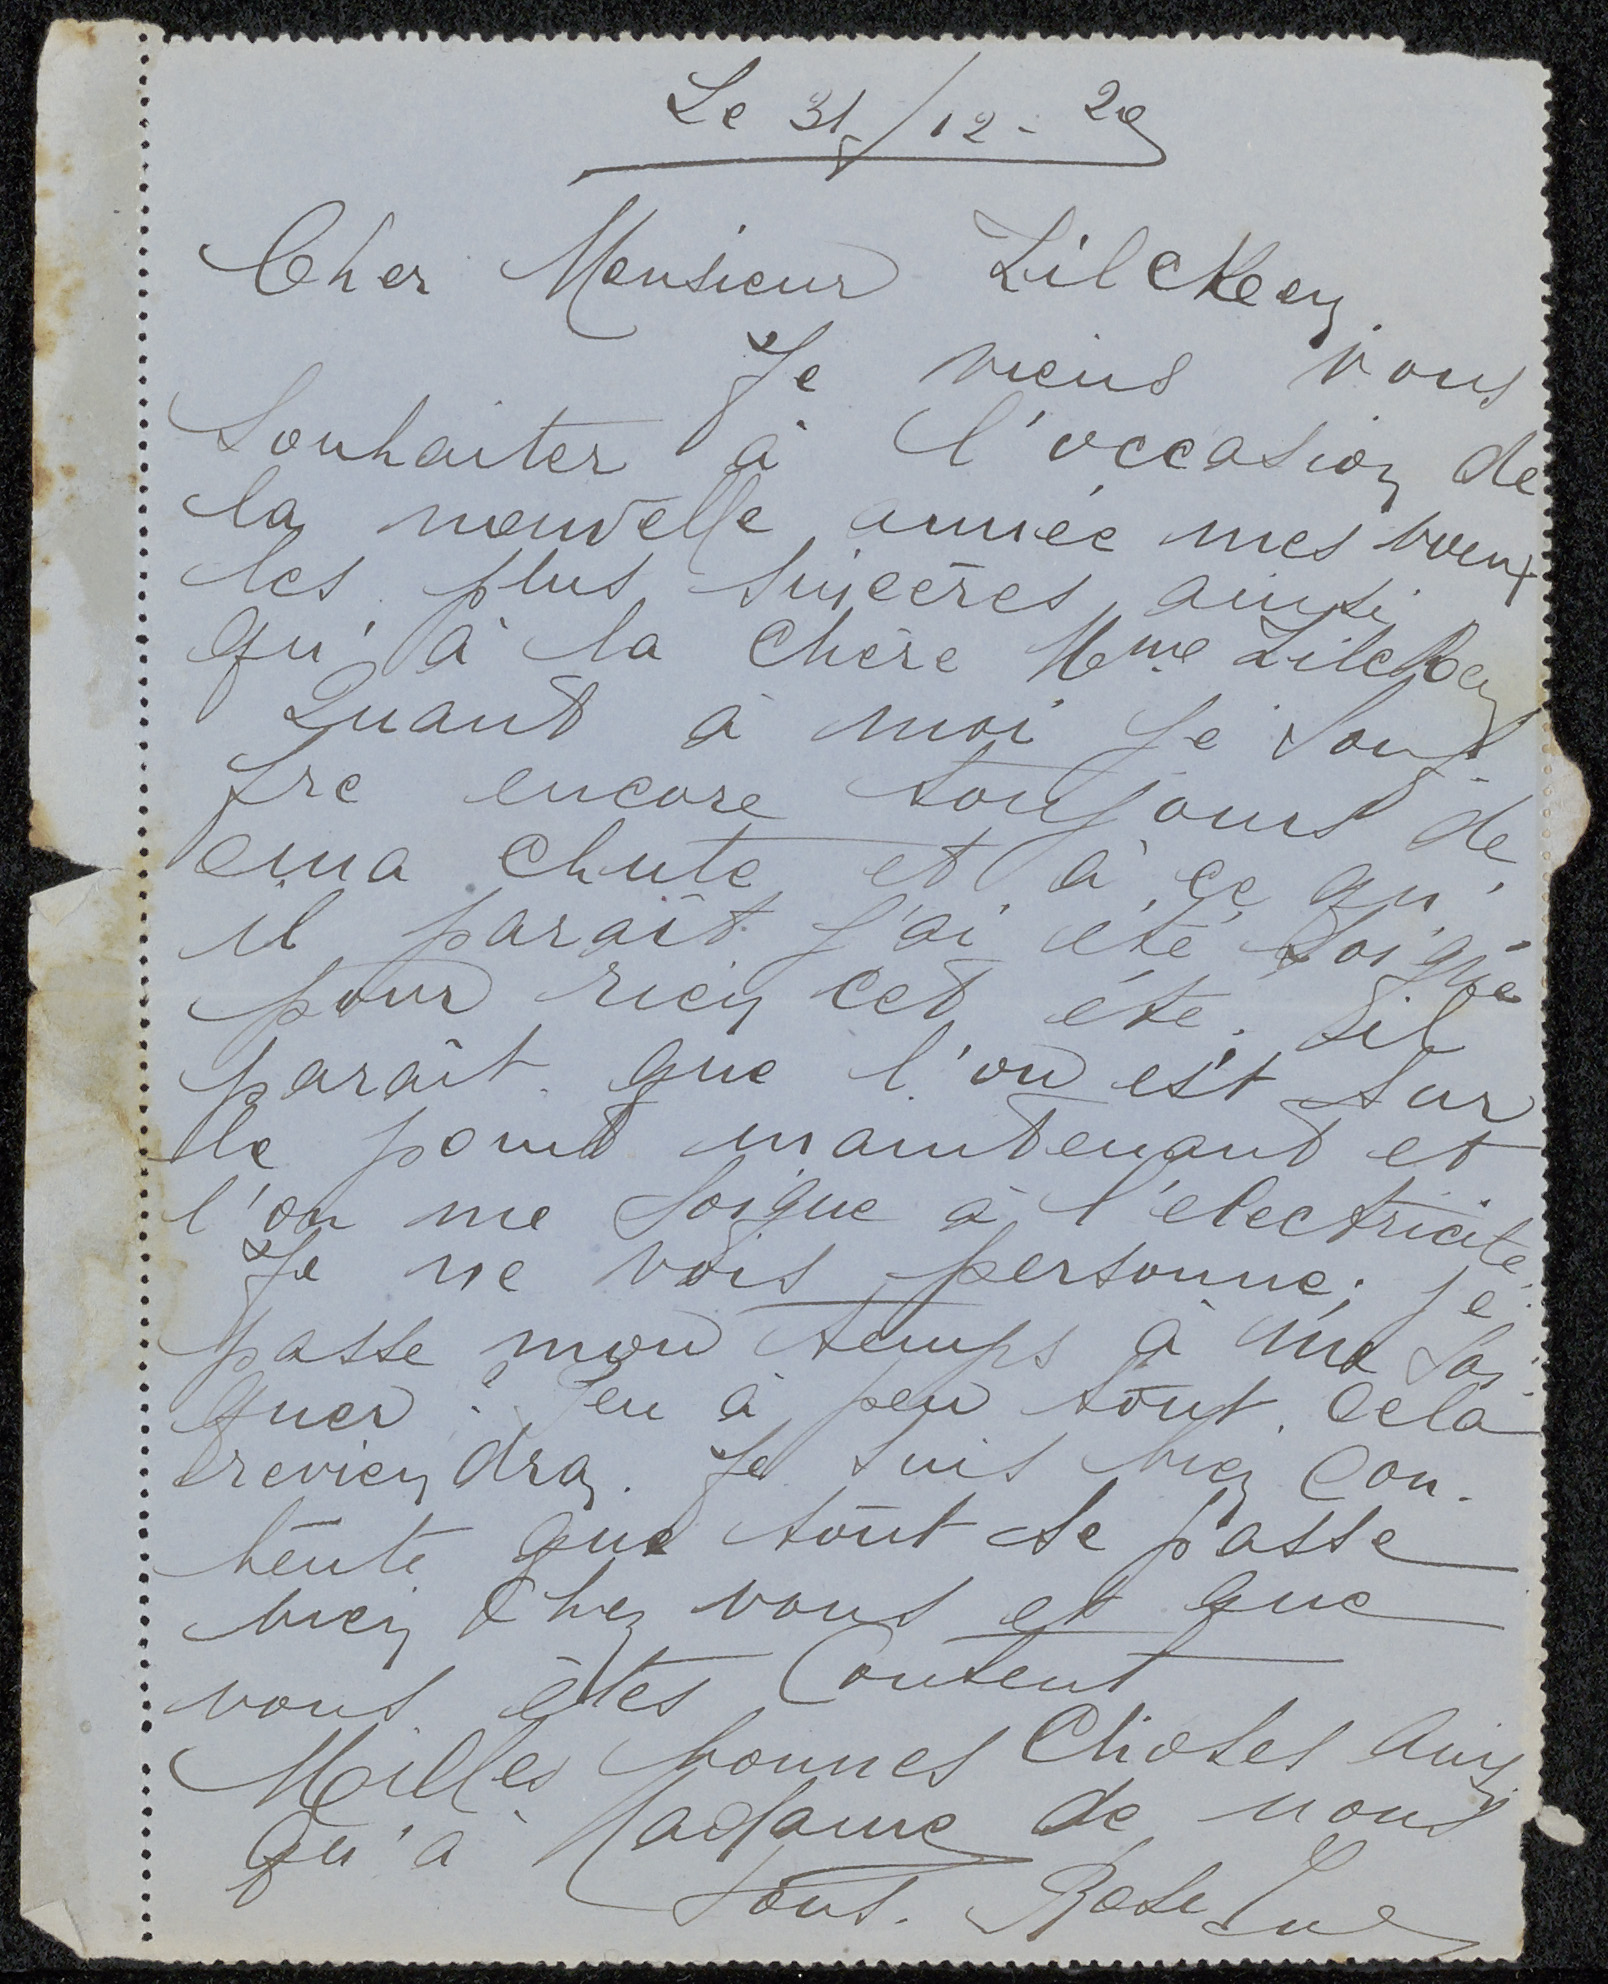 Le 31/12 - 20
Cher Monsieur Zilcken
Je viens vous
souhaiter à l'occasion de
la nouvelle année mes voeux
les plus sincères ainsi
qu'à la chère Mme Zilcken
Quant à moi je souf-
fre encore toujours de
ma chute et à ce qu'
il paraît j'ai été soigné
pour rien cet été. Il
paraît que l'on est sur
le point maintenant et
l'on me soigne à l'electricité.
Je ne vois personne; je
passe mon temps à me soi-
gner. Peu à peu tout cela
reviendra. Je suis bien con-
tente que tout se passe
bien chez vous et que
vous êtes content
Milles bonnes choses ainsi
qu'à Madame de nous
tous. Rose